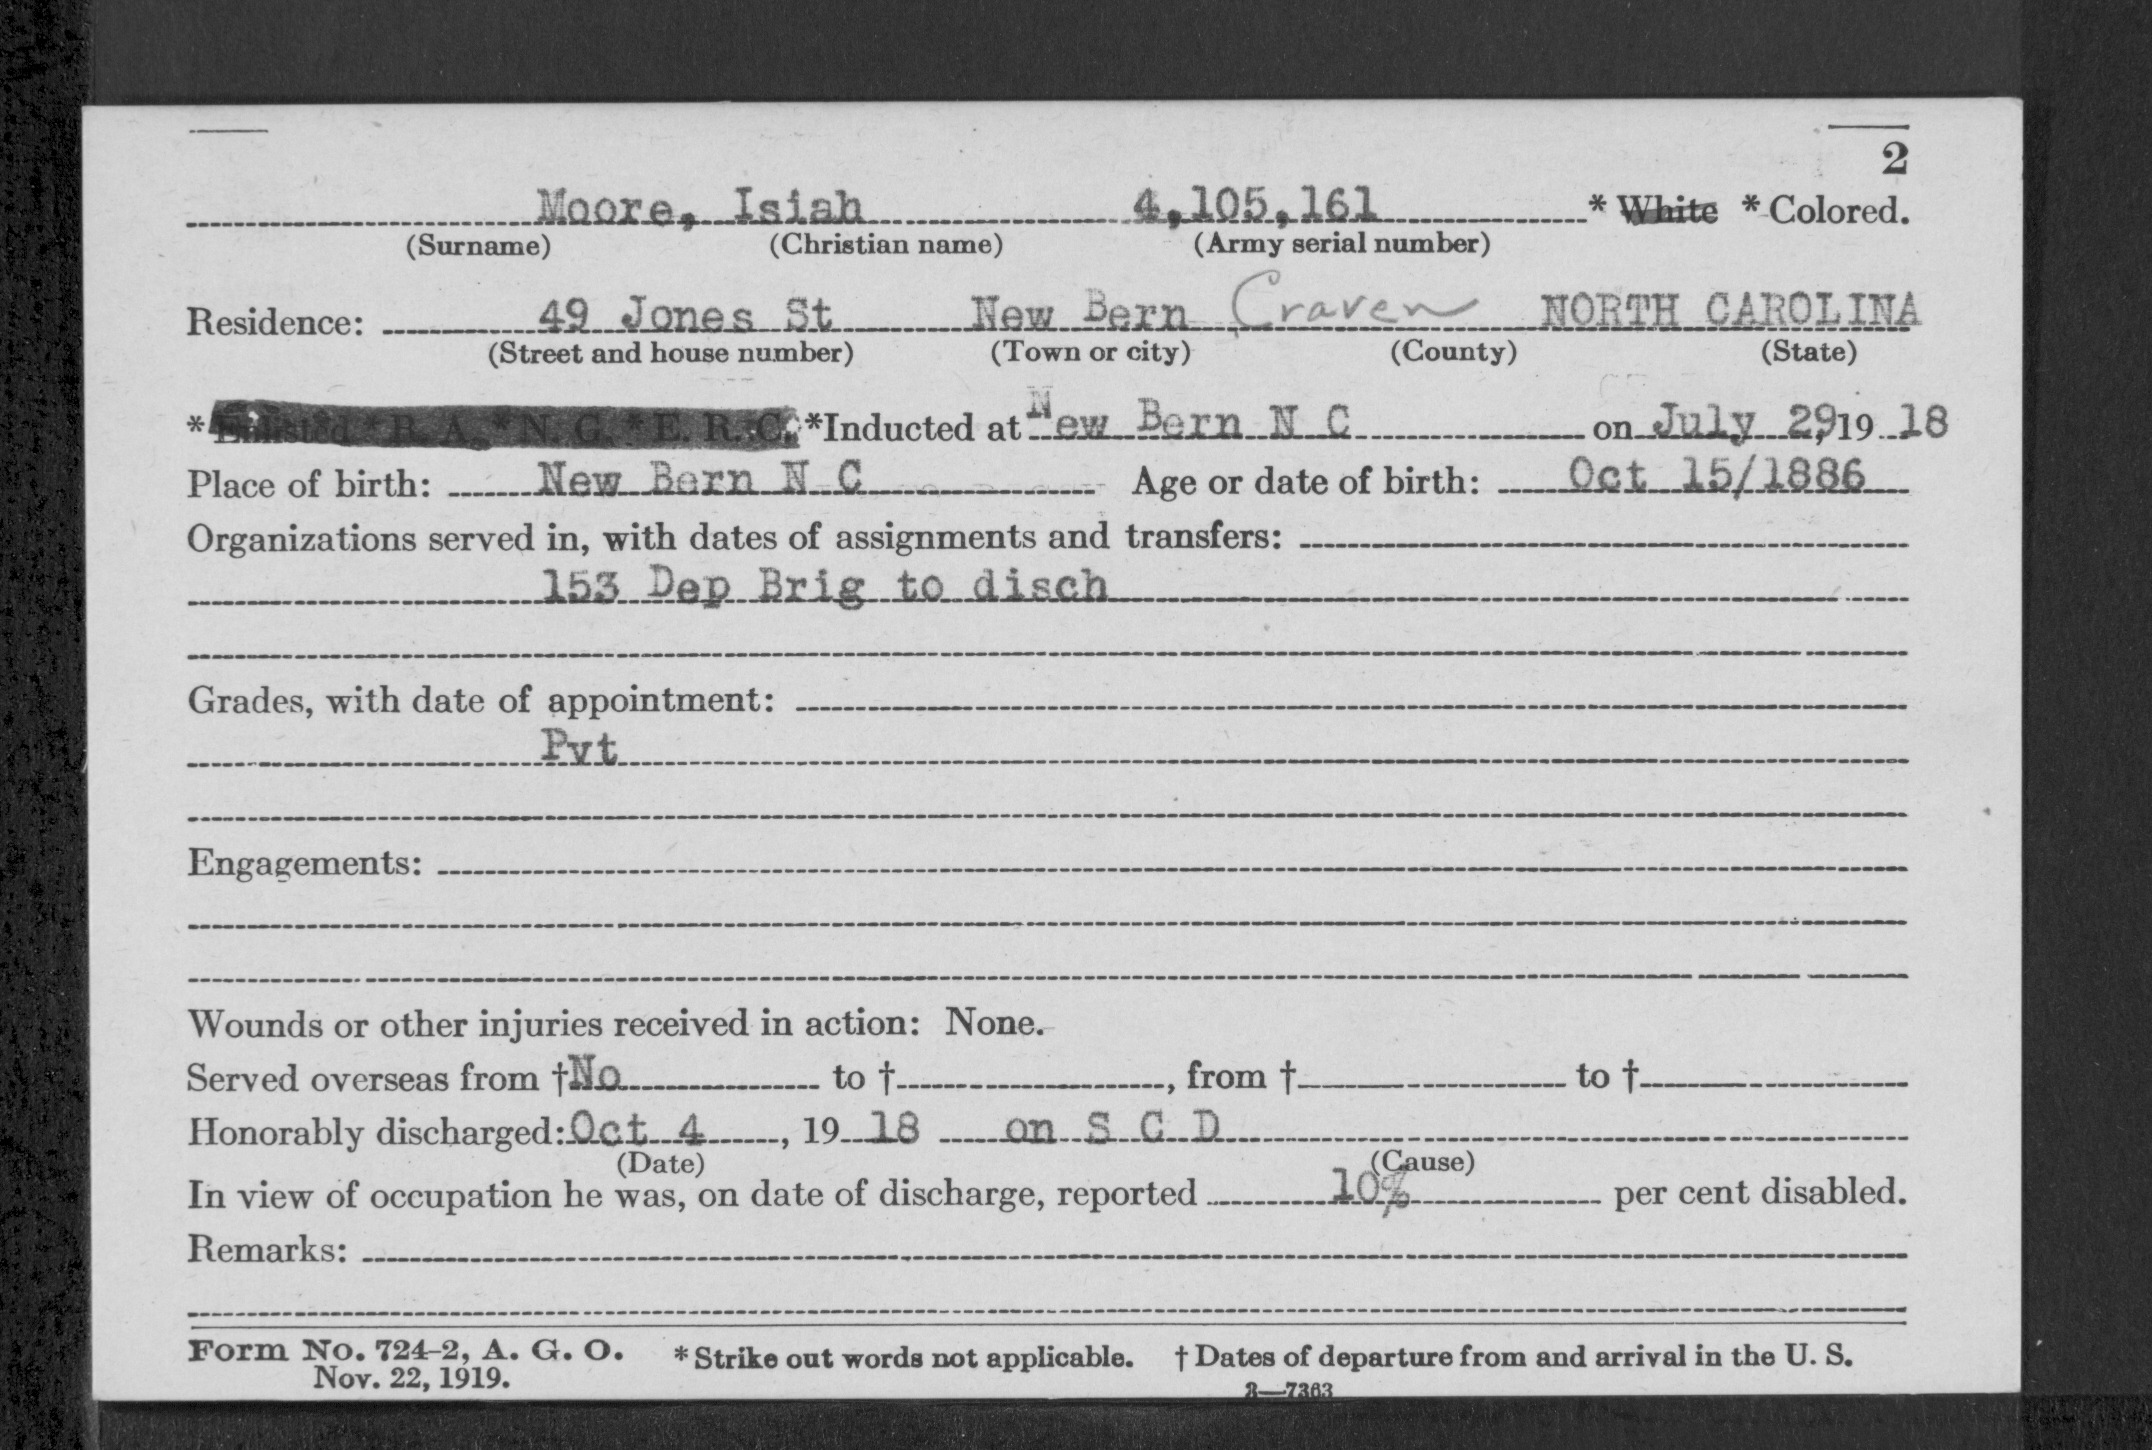 2
Moore, Isiah 4,105,161 * White * Colored.
(Surname) (Christian name) (Army serial number)
Residence: 49 Jones St New Bern Craven NORTH CAROLINA
(Street and house number) (Town or city) (County) (State)
* Enlisted * R. A. * N. G. * E. R. C. *Inducted at New Bern N C on July 29, 19 18
Place of birth: New Bern N C Age or date of birth: Oct 15/1886
Organizations served in, with dates of assignments and transfers:
153 Dep Brig to disch
Grades, with date of appointment:
Pvt
Engagements:
Wounds or other injuries received in action: None.
Served overseas from †No to †, from † to †
Honorably discharged: Oct 4, 19 18 on S C D
(Date) (Cause)
In view of occupation he was, on date of discharge, reported 10% per cent disabled.
Remarks:
Form No. 724-2, A. G. O. * Strike out words not applicable. † Dates of departure from and arrival in the U. S.
Nov. 22, 1919. 3—7363